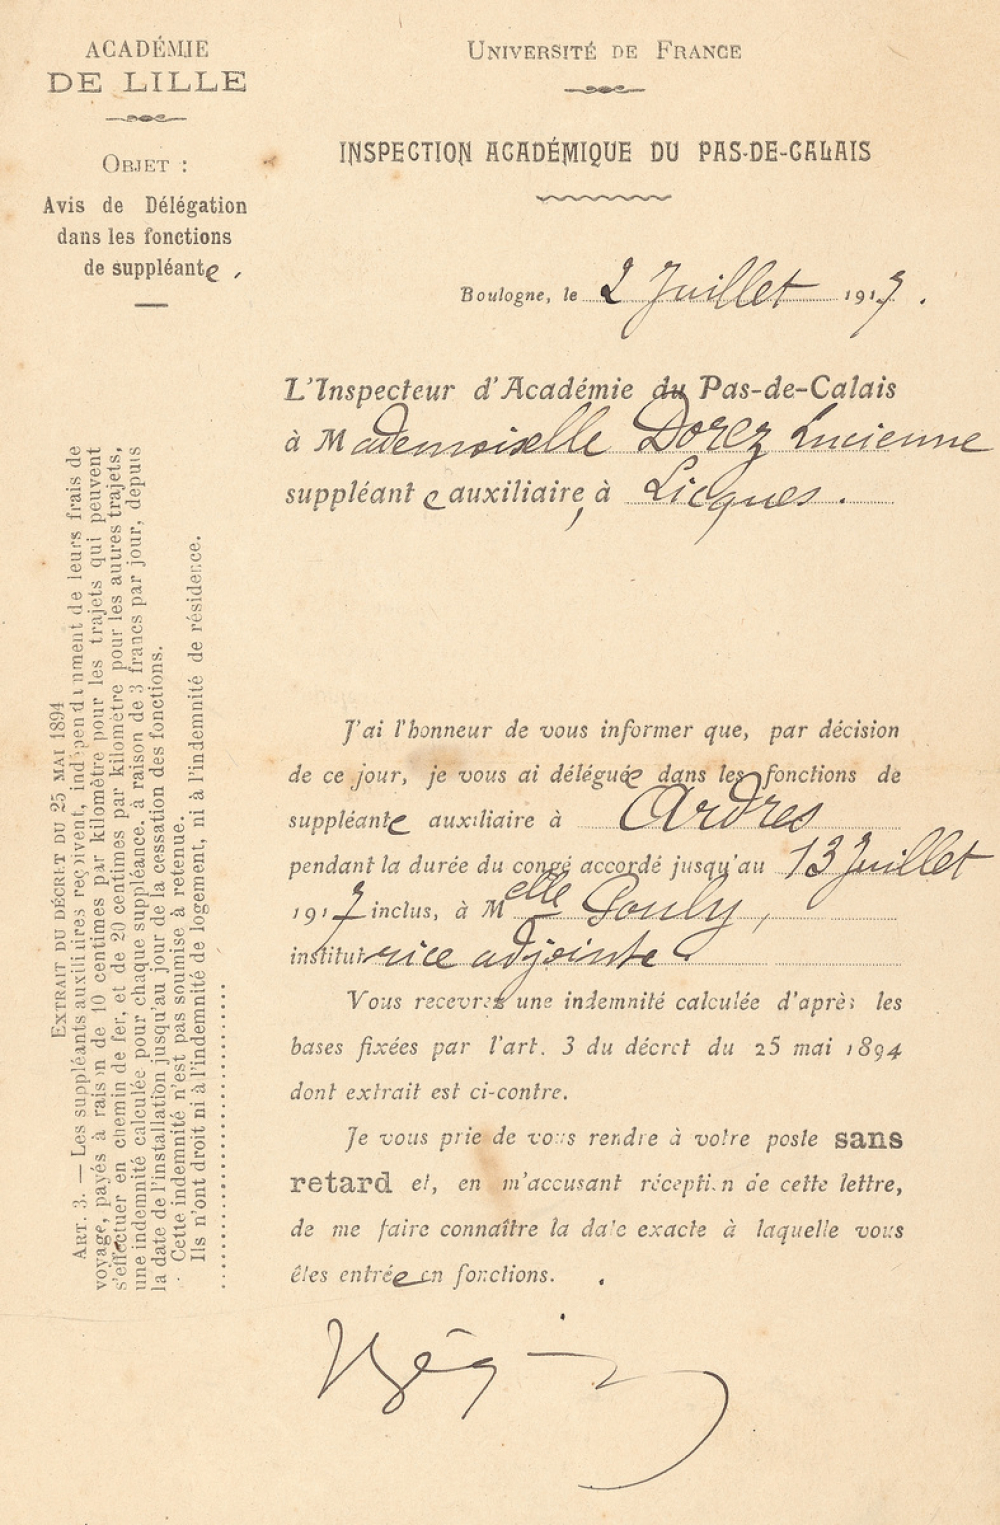 ACADÉMIE
DE LILLE
OBJET :
Avis de Délégation
dans les fonctions
de suppléante,
UNIVERSITÉ DE FRANCE
INSPECTION ACADÉMIQUE DU PAS-DE-CALAIS
Boulogne, le 2 Juillet 1917.
L'Inspecteur d'Académie du Pas-de-Calais
à Mademoiselle Dorez Lucienne
suppléante auxiliaire, à Licques.
J'ai l'honneur de vous informer que, par décision
de ce jour, je vous ai déléguée dans les fonctions de
suppléante auxiliaire à Ardres
pendant la durée du congé accordé jusqu'au 13 Juillet
1917 inclus, à Melle Pouly,
institutrice adjointe.
Vous recevrez une indemnité calculée d'après les
bases fixées par l'art. 3 du décret du 25 mai 1894
dont extrait est ci-contre.
Je vous prie de vous rendre à votre poste sans
retard et, en m'accusant réception de cette lettre,
de me faire connaître la date exacte à laquelle vous
êtes entrée en fonctions.
EXTRAIT DU DÉCRET DU 25 MAI 1894
ART. 3. — Les suppléants auxiliaires reçoivent, indépendamment de leurs frais de
voyage, payés à raison de 10 centimes par kilomètre pour les trajets qui peuvent
s'effectuer en chemin de fer, et de 20 centimes par kilomètre pour les autres trajets,
une indemnité calculée pour chaque suppléance, à raison de 3 francs par jour, depuis
la date de l'installation jusqu'au jour de la cessation des fonctions.
Cette indemnité n'est pas soumise à retenue.
Ils n'ont droit ni à l'indemnité de logement, ni à l'indemnité de résidence.